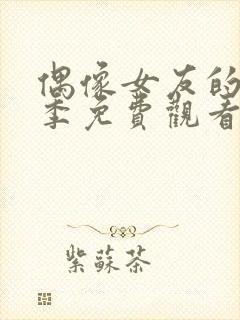 偶像女友的
季免費觀看
紫蘇茶